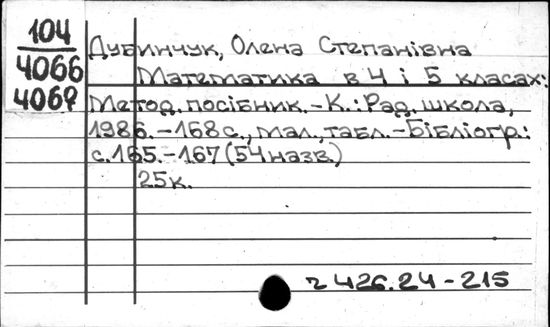 104
4066
4067
Дубинчук, Олена Степанівна
Математика в 4 і 5 класах:
Метод. посібник.-К.: Рад. школа,
1986.-168 с., мал., табл.-Бібліогр.:
с.165.-167 (54 назв.)
25к.
ч 426.24-215